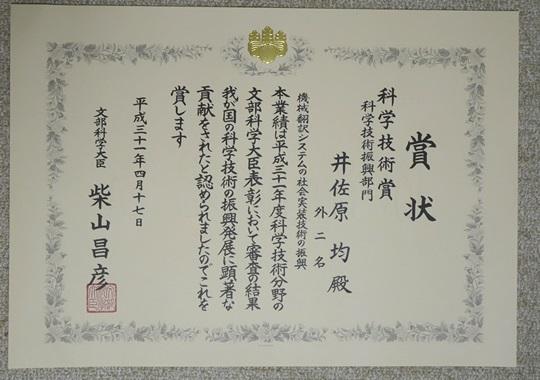 賞状
科学技術賞
科学技術振興部門
井佐原 均 殿
外二名
機械翻訳システムの社会実装技術の振興
本業績は平成三十一年度科学技術分野の
文部科学大臣表彰において審査の結果
我が国の科学技術の振興発展に顕著な
貢献をされたと認められましたのでこれを
賞します
平成三十一年四月十七日
文部科学大臣 柴山昌彦